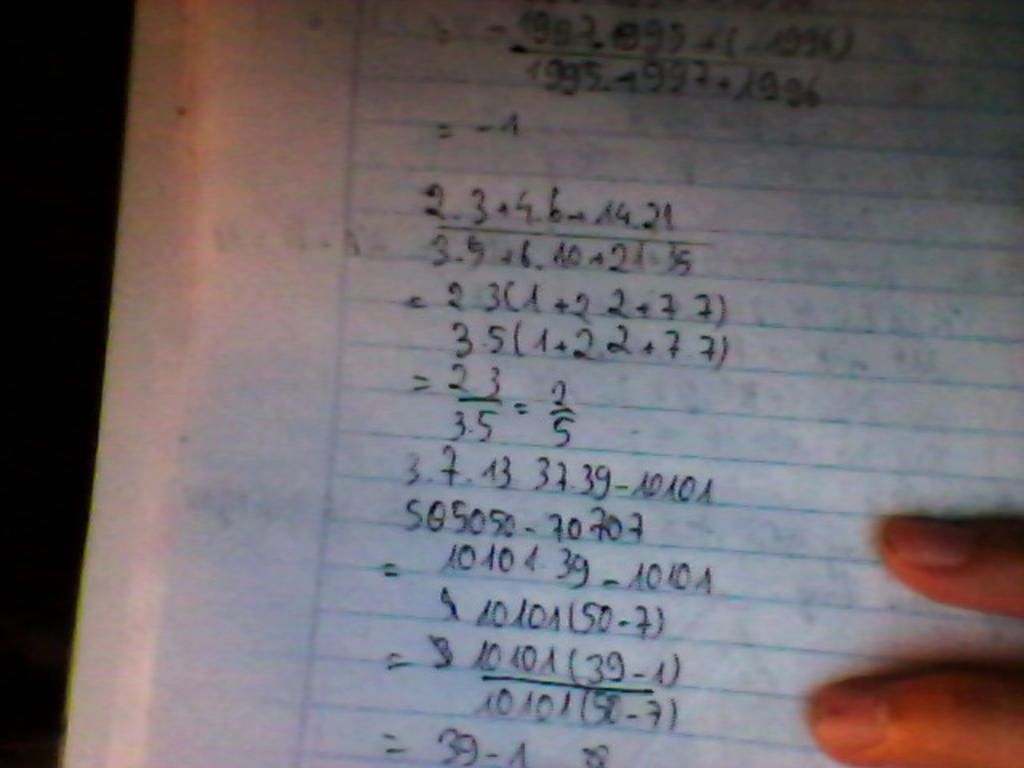 - 1997.1995+(-1996)
1995.1997+1996
= -1
2.3+4.6+14.21
3.5+6.10+21.35
= 2 3(1+2 2+7 7)
3.5(1+2 2+7 7)
= 2 3
3.5 = 2
5
3.7.13 37.39-10101
505050-70707
= 10101 39-10101
10101(50-7)
= 10101(39-1)
10101(50-7)
= 39-1